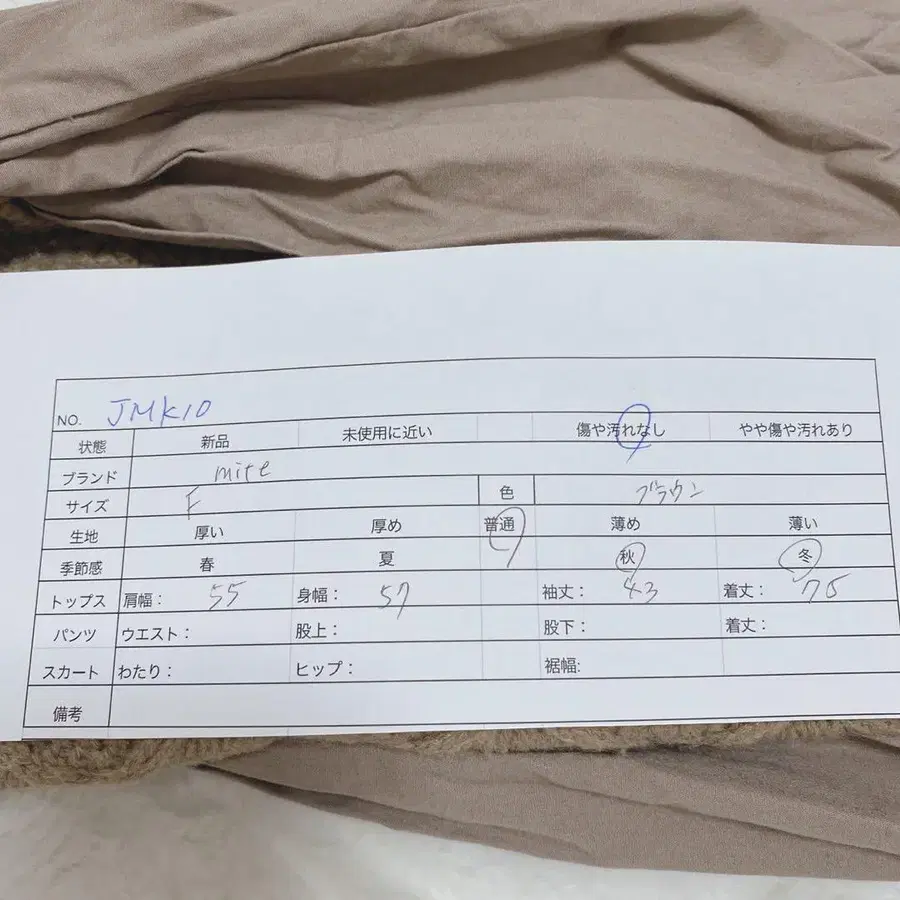 NO. JMK10
状態 新品 未使用に近い 傷や汚れなし やや傷や汚れあり
ブランド mite
サイズ F 色 ブラウン
生地 厚い 厚め 普通 薄め 薄い
季節感 春 夏 秋 冬
トップス 肩幅: 55 身幅: 57 袖丈: 43 着丈:
パンツ ウエスト: 股上: 股下: 着丈:
スカート わたり: ヒップ: 裾幅:
備考